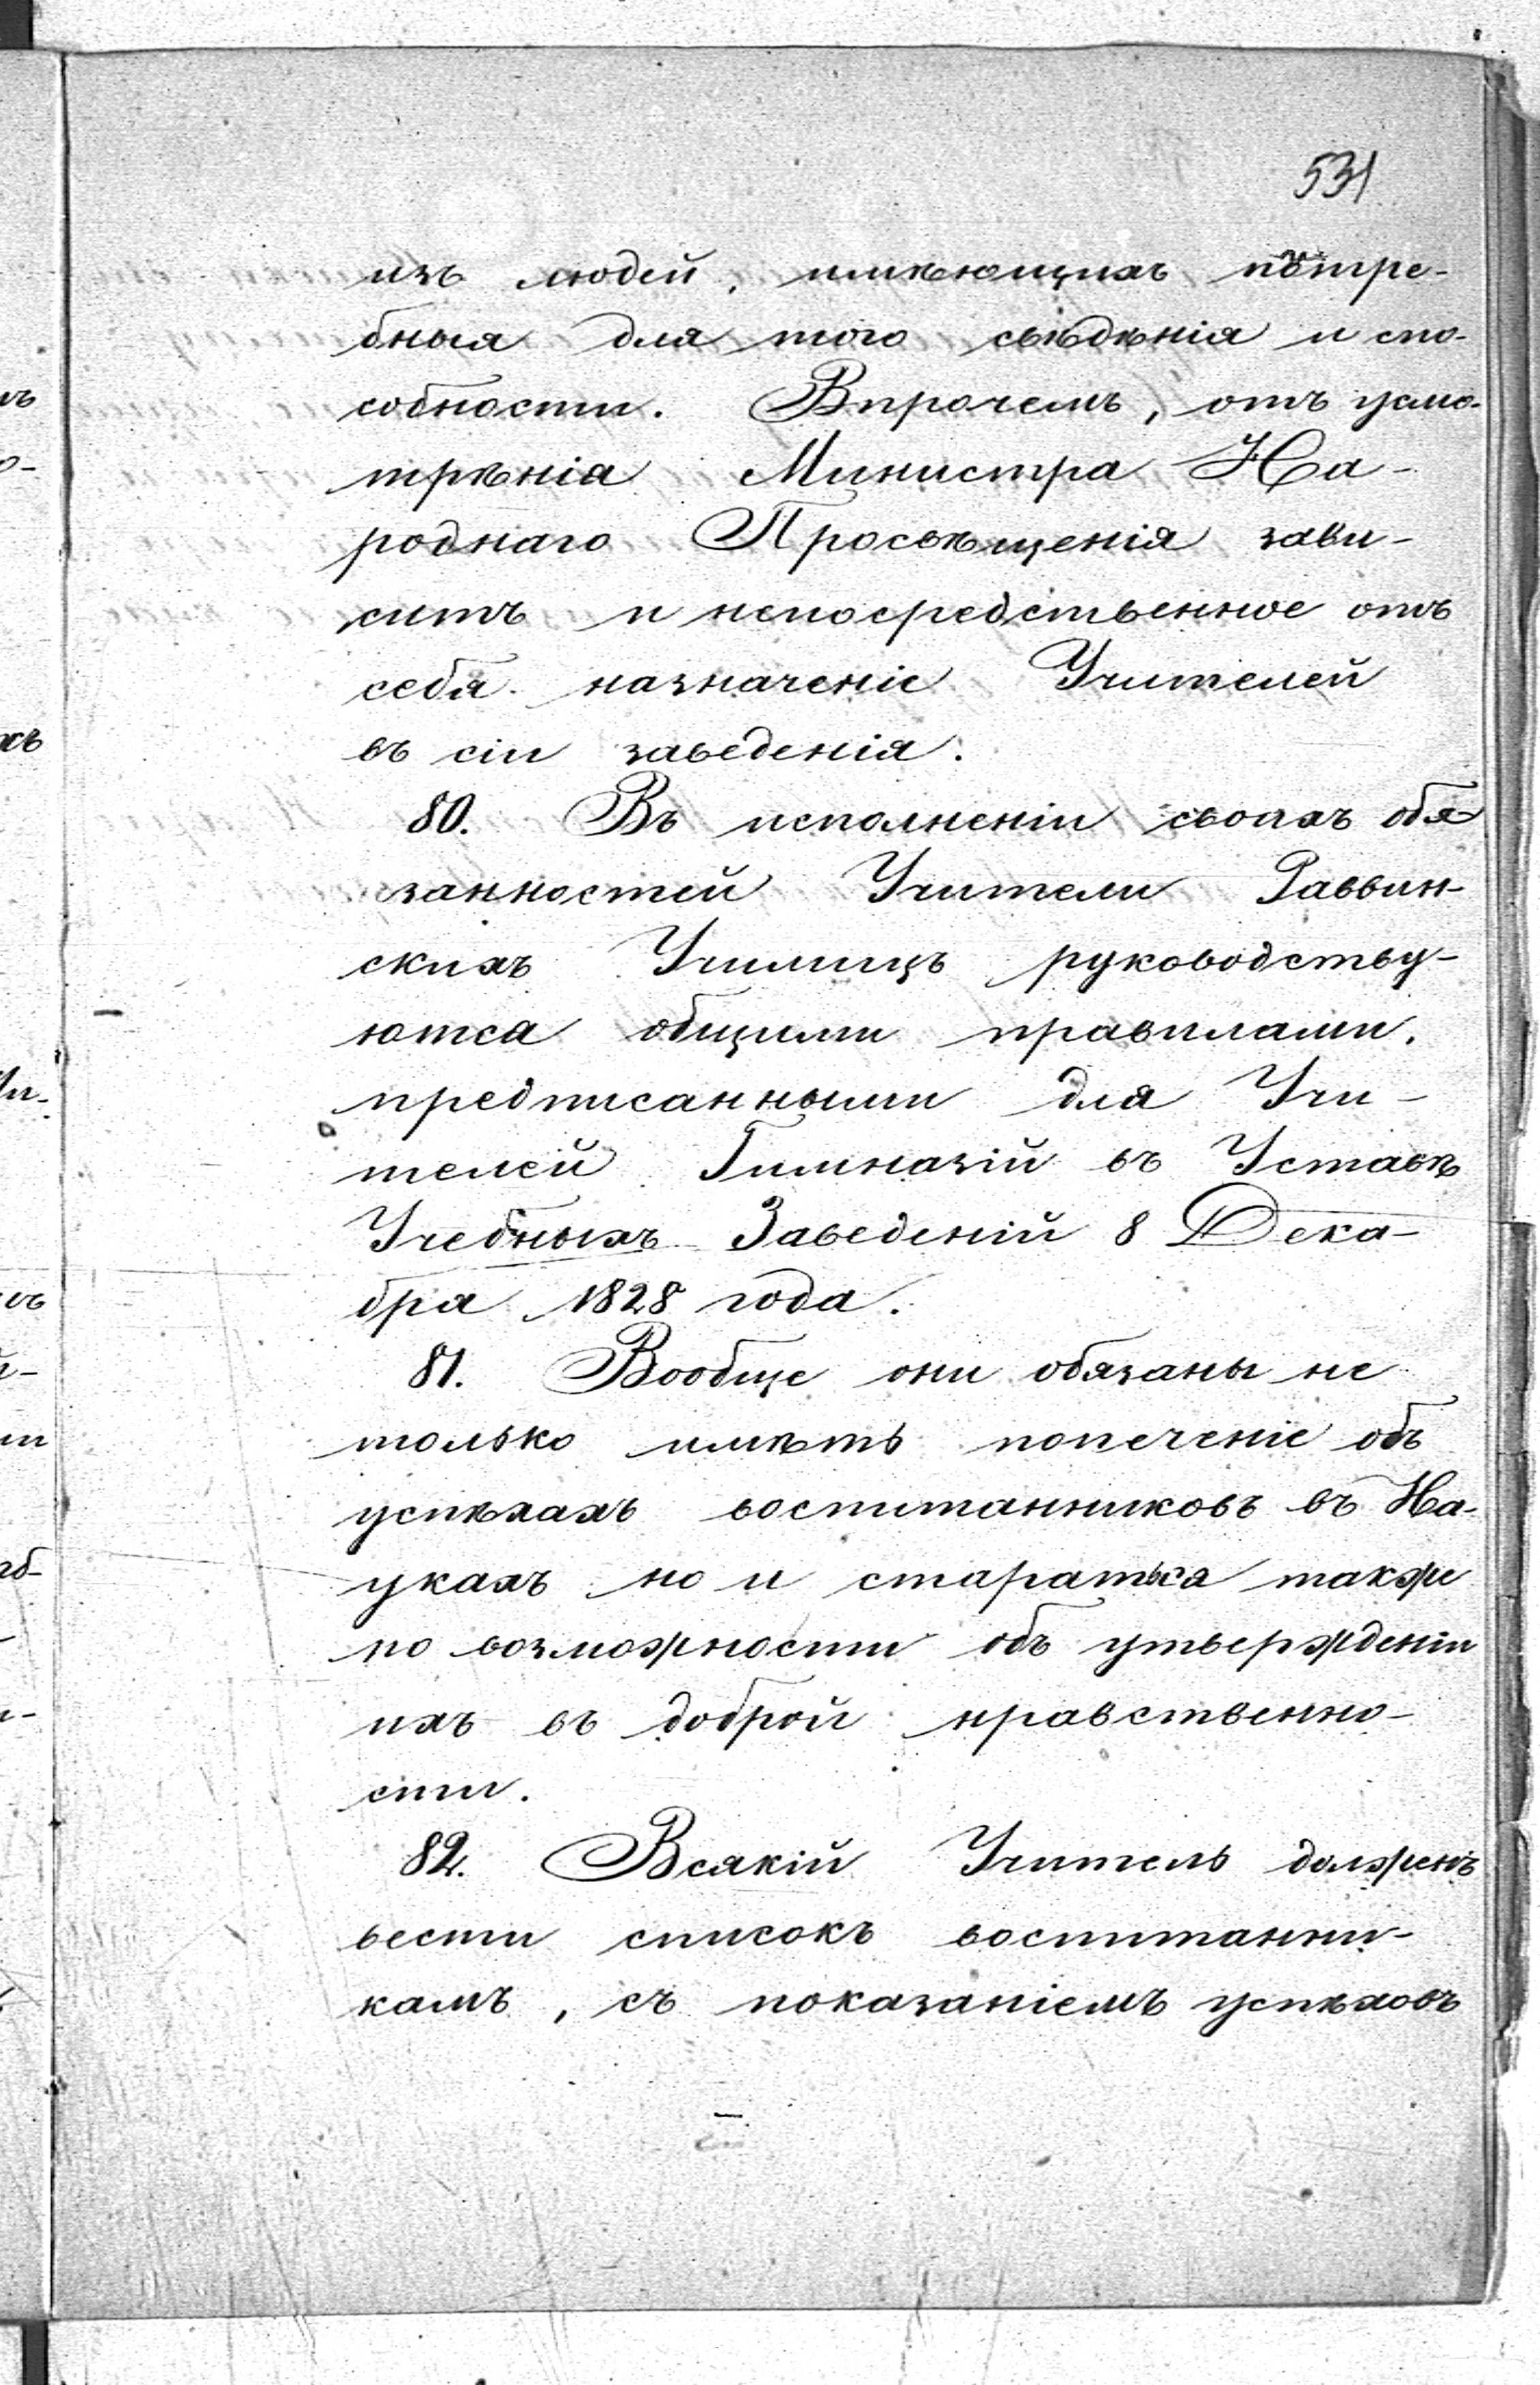 531
изъ людей, имѣющихъ потре-
бныя для того свѣдѣнія и спо-
собности. Впрочемъ, отъ усмо-
трѣнія Министра На-
роднаго Просвѣщенія зави-
ситъ и непосредственное отъ
себя назначеніе Учителей
въ сіи заведенія.
80. Въ исполненіи своихъ обя
занностей Учители Раввин-
скихъ Училищъ руководству-
ются общими правилами,
предписанными для Учи-
телей Гимназій въ Уставѣ
Учебныхъ Заведеній 8 Дека-
бря 1828 года.
81. Вообще они обязаны не
только имѣть попеченіе объ
успѣхахъ воспитанниковъ въ На-
укахъ но и стараться также
по возможности объ утвержденіи
ихъ въ доброй нравственно-
сти.
82. Всякій Учитель долженъ
вести списокъ воспитанни-
камъ, съ показаніемъ успѣховъ